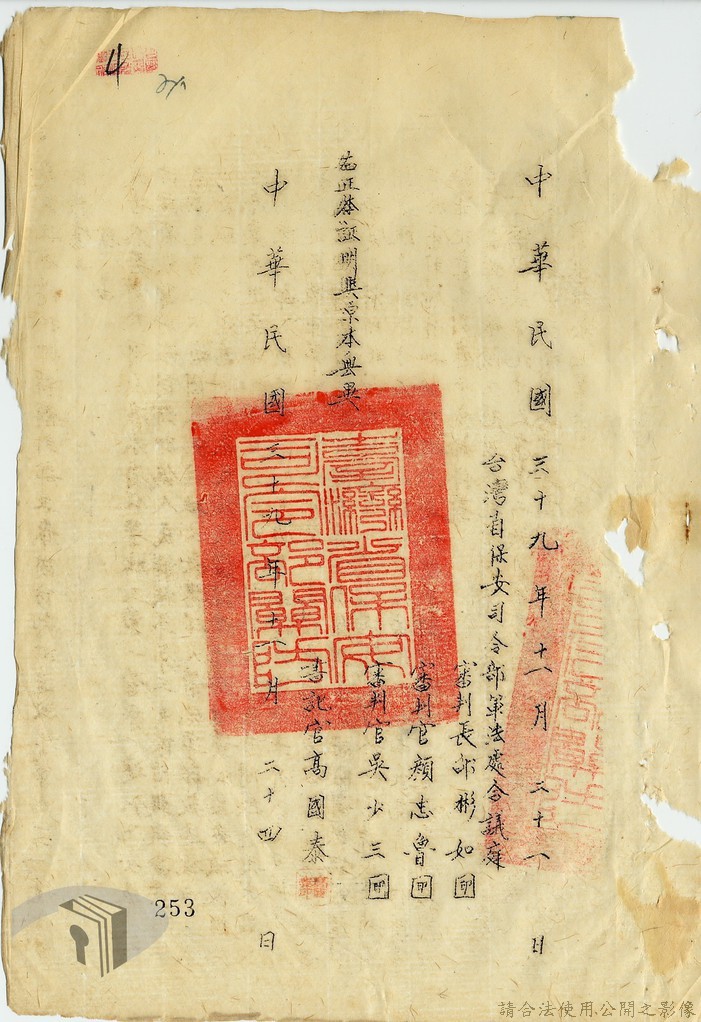 4
中華民國三十九年十一月二十一日
台灣省保安司令部軍法處合議庭
審判長邱彬如印
審判官顏忠魯印
審判官吳少三印
右正本証明與原本無異
書記官高國泰
中華民國三十九年十一月二十四日
臺灣省保安司令部軍法
253
請合法使用公開之影像